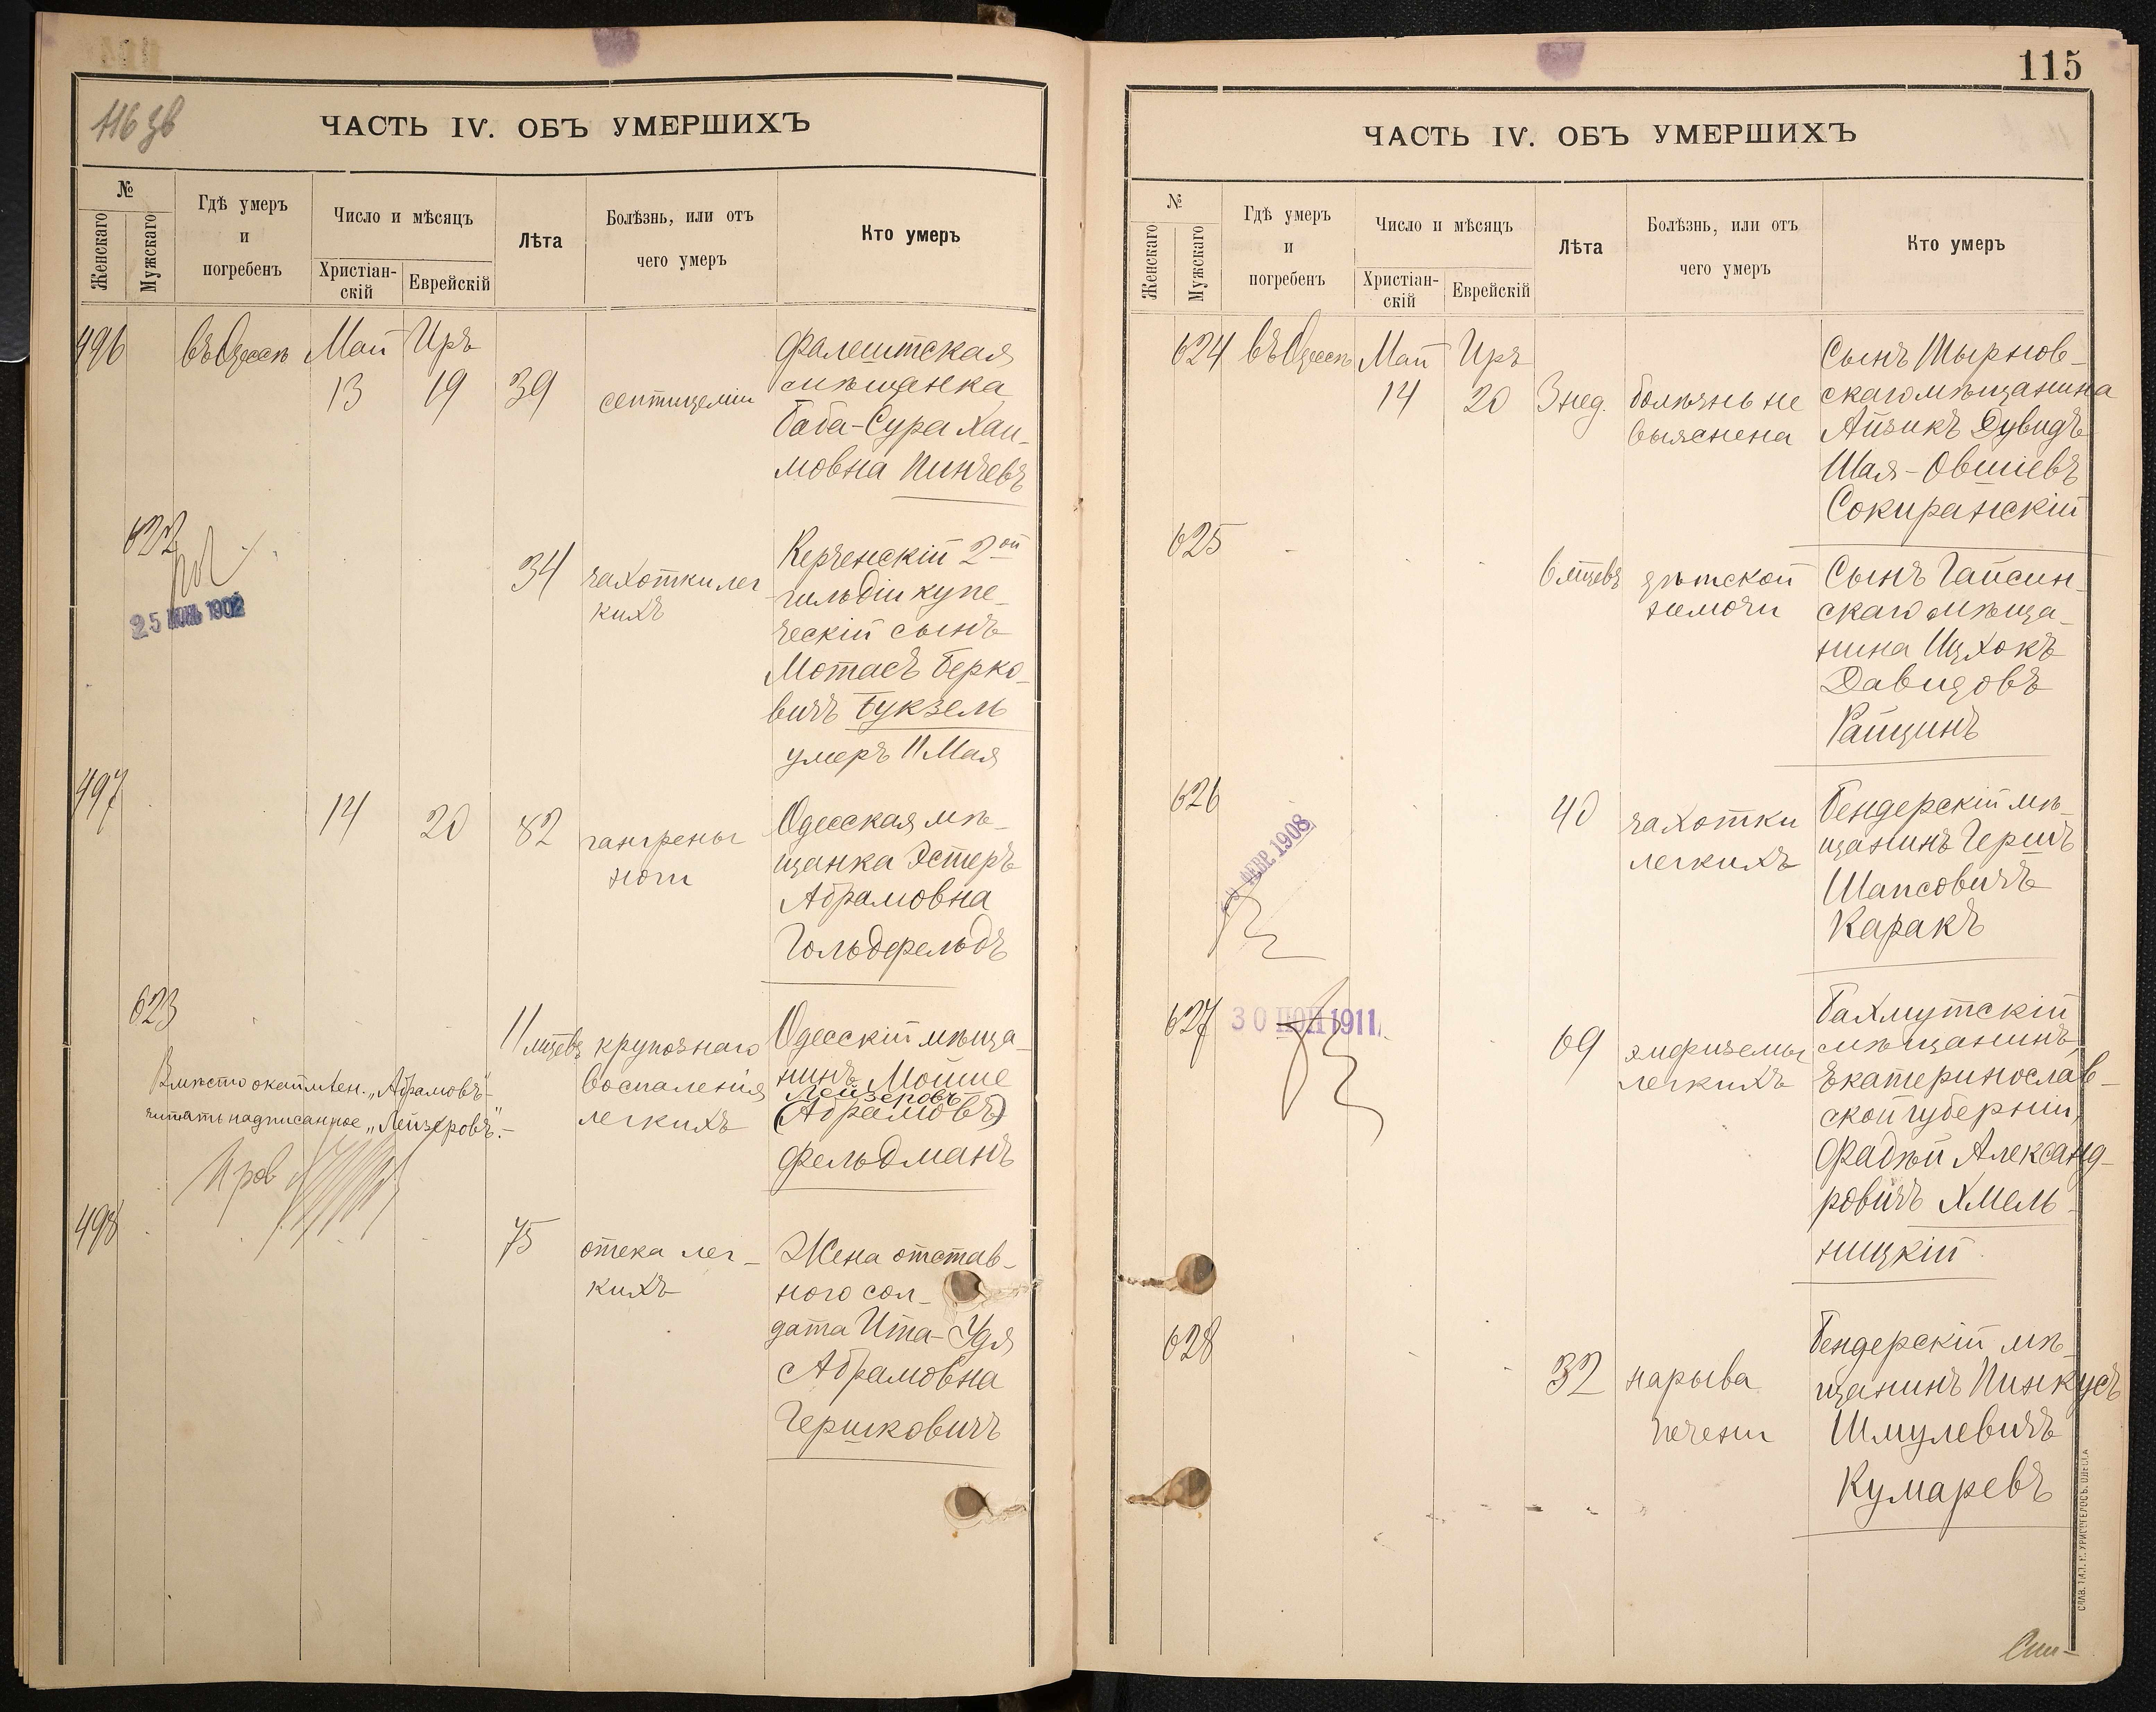 116 зв
ЧАСТЬ IV. ОБЪ УМЕРШИХЪ
№
Женскаго
Мужскаго
Гдѣ умеръ
и
погребенъ
Число и мѣсяцъ
Христіан-
скій
Еврейскій
Лѣта
Болѣзнь, или отъ
чего умеръ
Кто умеръ
496
въ Одессѣ
Май
13
Иръ
19
39
септицеміи
Фалештская
мѣщанка
Баба-Сура Хаи-
мовна Пинчевъ
622
25 1902
34
чахотки лег
кихъ
Керченскій 2ой
гильдіи купе-
ческій сынъ
Мотасъ Берко-
вичъ Букзель
умеръ 11 Мая
497
14
20
82
гангрены
ноги
Одесская мѣ-
щанка Эстеръ
Абрамовна
Гольдфельдъ
623
11 мцевъ
крупознаго
воспаленія
легкихъ
Одесскій мѣща-
нинъ Мойше
Лейзеровъ
(Абрамовъ)
Фельдманъ
Вмѣсто окаймлен. „Абрамовъ"-
читать надписанное „Лейзеровъ".-
498
75
отека лег-
кихъ
Жена отстав-
ного сол-
дата Ита-Удя
Абрамовна
Гершковичъ
115
ЧАСТЬ IV. ОБЪ УМЕРШИХЪ
№
Женскаго
Мужскаго
Гдѣ умеръ
и
погребенъ
Число и мѣсяцъ
Христіан-
скій
Еврейскій
Лѣта
Болѣзнь, или отъ
чего умеръ
Кто умеръ
624
въ Одессѣ
Май
14
Иръ
20
3 нед.
болѣзнь не
выяснена
Сынъ Тырнов-
скаго мѣщанина
Айзикъ Дувидъ
Шая-Овшіевъ
Сокиранскій
625
6 мцевъ
дѣтской
немочи
Сынъ Гайсин-
скаго мѣща-
нина Ицхокъ
Давидовъ
Райцинъ
626
ФЕВР 1908
40
чахотки
легкихъ
Бендерскій мѣ-
щанинъ Гершъ
Шапсовичъ
Каракъ
627
30 1911
69
эмфиземы
легкихъ
Бахмутскій
мѣщанинъ,
Екатеринослав-
ской губерніи,
Фадѣй Александ-
ровичъ Хмель-
ницкій
628
32
нарыва
печени
Бендерскій мѣ-
щанинъ Пинкусъ
Шмулевичъ
Кумаревъ